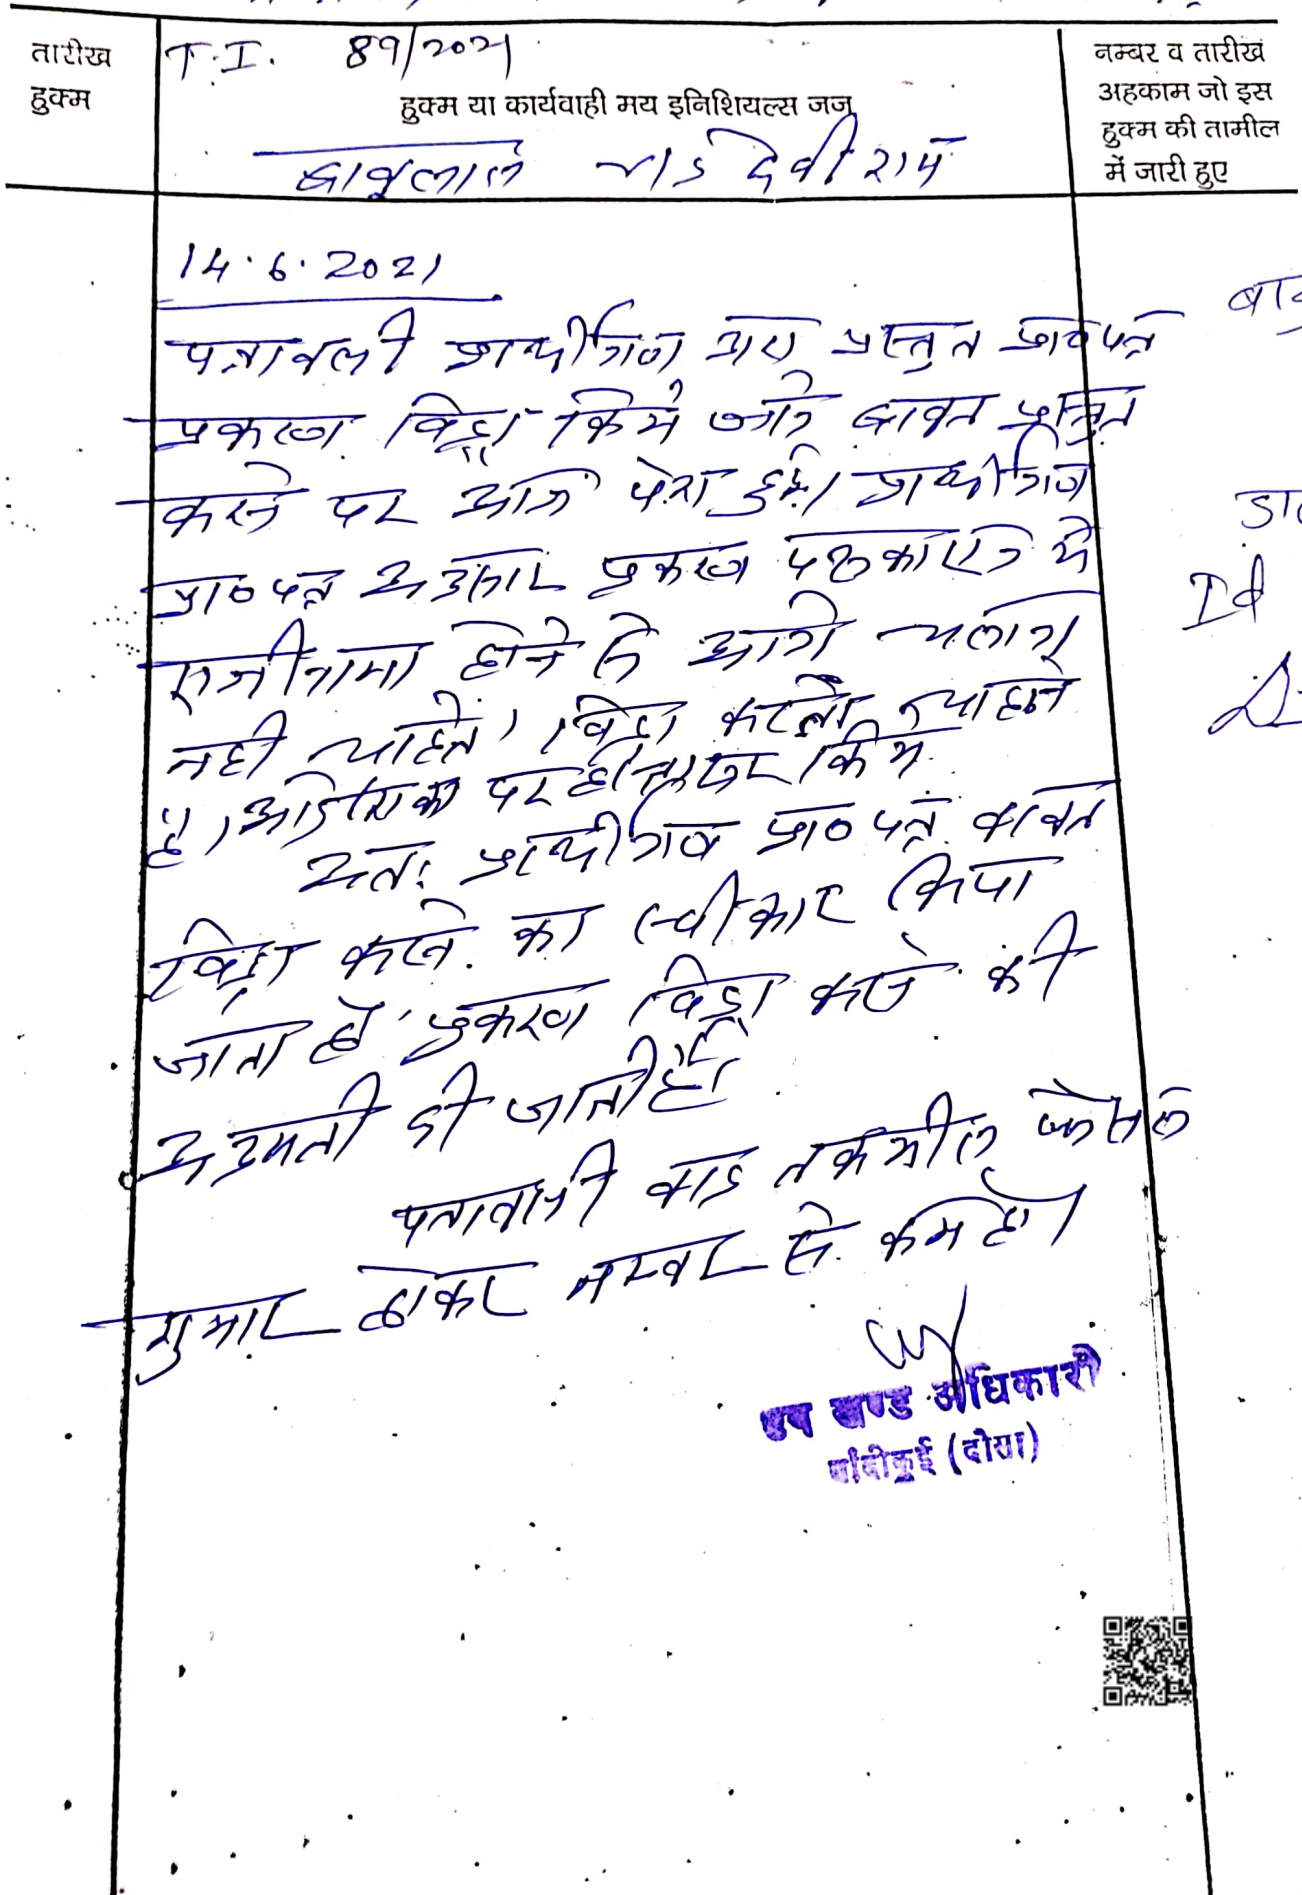 तारीख
हुक्म
T.I. 89/2021
हुक्म या कार्यवाही मय इनिशियल्स जज
बाबूलाल v/s देवीराम
नम्बर व तारीख
अहकाम जो इस
हुक्म की तामील
में जारी हुए
14.6.2021
पत्रावली प्रार्थीगण द्वारा प्रस्तुत प्रा०पत्र
प्रकरण विड्रा किये जाने बाबत प्रस्तुत
करने पर आज पेश हुई। प्रार्थीगण
प्रा०पत्र अनुसार प्रकरण पक्षकारान मे
राजीनामा होने से आगे चलाना
नही चाहते। विड्रा करना चाहते
है। पर हस्ताक्षर किये
अतः प्रार्थीगण प्रा०पत्र बाबत
विड्रा करने का स्वीकार किया
जाता है प्रकरण विड्रा करने की
अनुमती दी जाती है।
पत्रावली बाद तकमील फैसल
शुमार होकर नम्बर से कम हो।
उप खण्ड अधिकारी
बांदीकुई (दौसा)